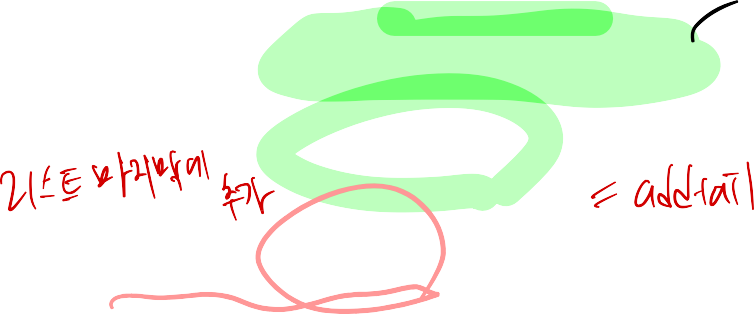 리스트 마지막에 추가 = addtail